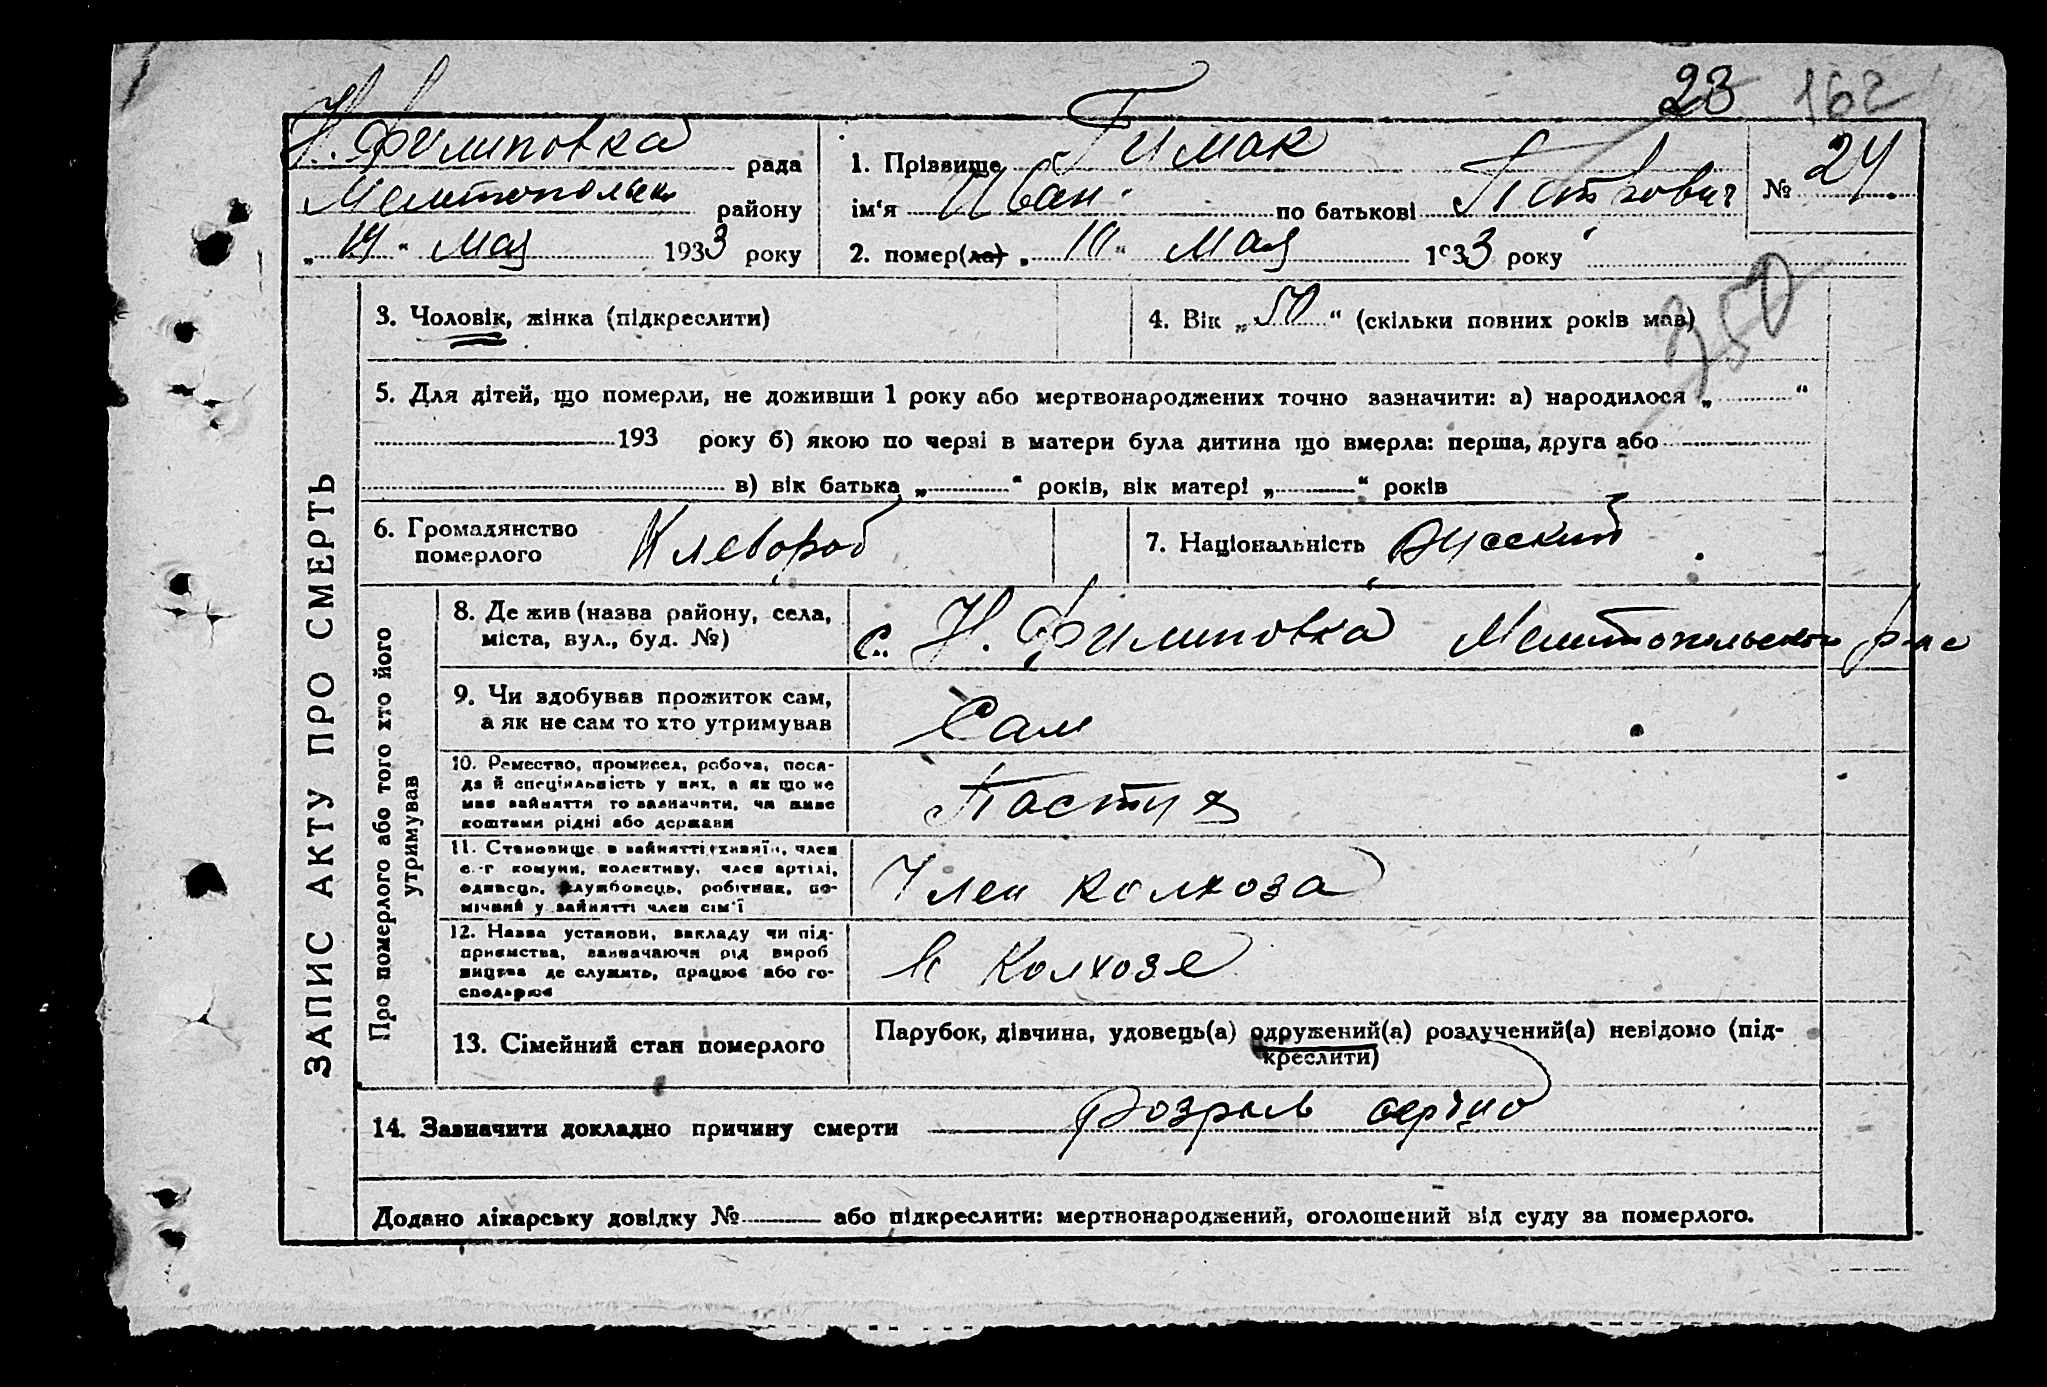 23 162
Н. Филиповка рада
Мелитопольск району
" 14 " Мая 1933 року
1. Прізвище Гимак
ім'я Иван по батькові Петрович
№ 24.
2. помер(ла) " 10 " Мая 1933 року
350
ЗАПИС АКТУ ПРО СМЕРТЬ
3. Чоловік, жінка (підкреслити)
4. Вік „ 50 “ (скільки повних років мав)
5. Для дітей, що померли, не доживши 1 року або мертвонароджених точно зазначити: а) народилося „ “
193 року б) якою по черзі в матери була дитина що вмерла: перша, друга або
в) вік батька „ “ років, вік матері „ “ років
6. Громадянство померлого Хлебороб
7. Національність Русский
Про померлого або того хто його утримував
8. Де жив (назва району, села,
міста, вул., буд. №)
с. Н. Филиповка Мелитопольского р-на
9. Чи здобував прожиток сам,
а як не сам то хто утримував
Сам
10. Ремество, промисел, робота, поса-
да й спеціяльність у них, а як що не
мав зайняття то зазначити, чи живе
коштами рідні або держави
Пастух
11. Становище в зайнятті (хазяїн, член
с.-г комуни, колективу, член артілі,
одинець, службовець, робітник, по-
мічний у зайнятті член сім'ї
Член колхоза
12. Назва установи, закладу чи під-
приємства, зазначаючи рід вироб
ництва де служить, працює або го-
сподарює
в Колхозе
13. Сімейний стан померлого
Парубок, дівчина, удовець(а) одружений(а) розлучений(а) невідомо (під-
креслити)
14. Зазначити докладно причину смерти розрыв сердца
Додано лікарську довідку № або підкреслити: мертвонароджений, оголошений від суду за померлого.